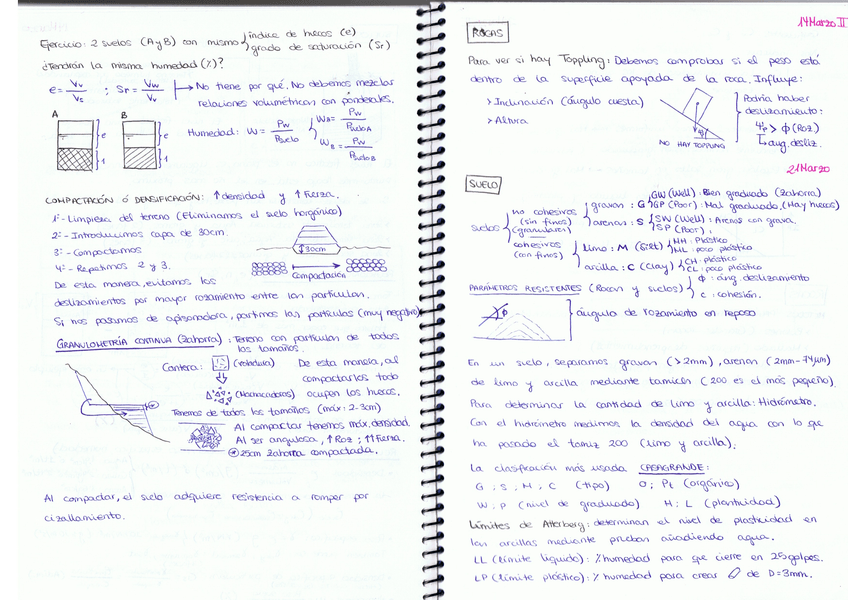 Ejercicio: 2 suelos (A y B) con mismo índice de huecos (e)
grado de saturación (Sr)
¿Tendrán la misma humedad (%)?
e = Vv / Vs ; Sr = Vw / Vv → No tiene por qué. No debemos mezclar
relaciones volumétricas con ponderales.
A B
e e
1 1
Humedad: W = Pw / Psuelo
WA = Pw / PsueloA
WB = Pw / PsueloB
COMPACTACIÓN ó DENSIFICACIÓN: ↑densidad y ↑Fuerza.
1º- Limpieza del terreno (Eliminamos el suelo inorgánico)
2º- Introducimos capa de 30cm.
3º- Compactamos
4º- Repetimos 2 y 3.
↕30cm
Compactación
De esta manera, evitamos los
deslizamientos por mayor rozamiento entre las partículas.
Si nos pasamos de apisonadora, partimos las partículas (muy negativo)
GRANULOMETRÍA CONTINUA (Zahorra): Terreno con partículas de todos
los tamaños.
Cantera: (voladura) De esta manera, al
compactarlos todo
(Machacadoras) ocupen los huecos.
Tenemos de todos los tamaños (máx: 2-3cm)
Al compactar tenemos máx. densidad.
Al ser angulosa, ↑Roz; ↑↑Fuerza.
* 25cm zahorra compactada.
Al compactar, el suelo adquiere resistencia a romper por
cizallamiento.
14 Marzo II
ROCAS
Para ver si hay Toppling: Debemos comprobar si el peso está
dentro de la superficie apoyada de la roca. Influye:
> Inclinación (ángulo cuesta)
> Altura
NO HAY TOPPLING
Podría haber
deslizamiento:
Ψp > ϕ (Roz)
↳ ang. desliz.
21 Marzo
SUELO
suelos
no cohesivos
(sin finos)
(granulares)
gravas: G
GW (Well): Bien graduado (Zahorra)
GP (Poor): Mal graduado (Hay huecos)
arenas: S
SW (Well): Arenas con grava.
SP (Poor):
cohesivos
(con finos)
limo: M (Silt)
MH: Plástico
ML: poco plástico
arcilla: C (Clay)
CH: plástico
CL: poco plástico
PARÁMETROS RESISTENTES (Rocas y suelos)
ϕ: áng. deslizamiento
c: cohesión.
ángulo de rozamiento en reposo
En un suelo, separamos gravas (>2mm), arenas (2mm-74μm)
de limo y arcilla mediante tamices (200 es el más pequeño).
Para determinar la cantidad de limo y arcilla: Hidrómetro.
Con el hidrómetro medimos la densidad del agua con lo que
ha pasado el tamiz 200 (limo y arcilla).
La clasificación más usada CASAGRANDE:
G ; S ; M ; C (tipo) O; Pt (orgánico)
W ; P (nivel de graduado) H ; L (plasticidad)
Límites de Atterberg: determinan el nivel de plasticidad en
las arcillas mediante pruebas añadiendo agua.
LL (límite líquido): % humedad para que cierre en 25 golpes.
LP (límite plástico): % humedad para crear de D=3mm.